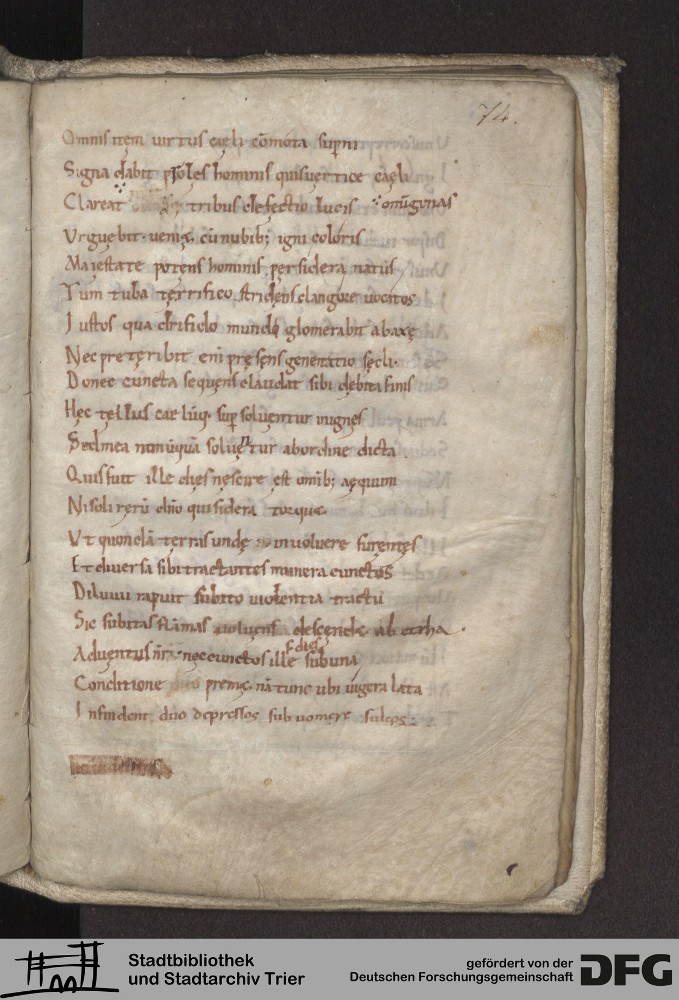 74.
Omnis item uirtus cęli cōmota suꝑni
Signa dabit proles hominis quis uertice cęli
Clareat tribus defectio lucis omūgenas
Vrguebit ueniꝫ cū nubibꝫ igni coloris
Maiestate potens hominis per sidera natus
Tum tuba terrifico stridens clangore uocitos
Iustos qua drifido mundi glomerabit ab axe
Nec preteribit eni presens generatio sęcli.
Donec cuncta sequens claudat sibi debita finis
Hęc tellus cęlūq. suꝑ soluentur
Sed mea nunquā soluentur ab ordine dicta.
Quis fuit ille dies nescire est omibꝫ aequum
Ni soli rerū dn̄o qui sidera torquꝫ
Vt quondā terras undę inuoluere furentes
Et diuersa sibi tractantes munera cunctos
Diluuii rapuit subito uiolentia tractu
Sic subitas flāmas uoluens descendꝫ ab ethra.
Aduentus nr̄i. nec cunctos ille s. dies sub una
Conditione premꝫ. nā tunc ubi iugera lata
Infindent duo depressos sub uomere sulcos.
Stadtbibliothek
und Stadtarchiv Trier
gefördert von der
Deutschen Forschungsgemeinschaft
DFG